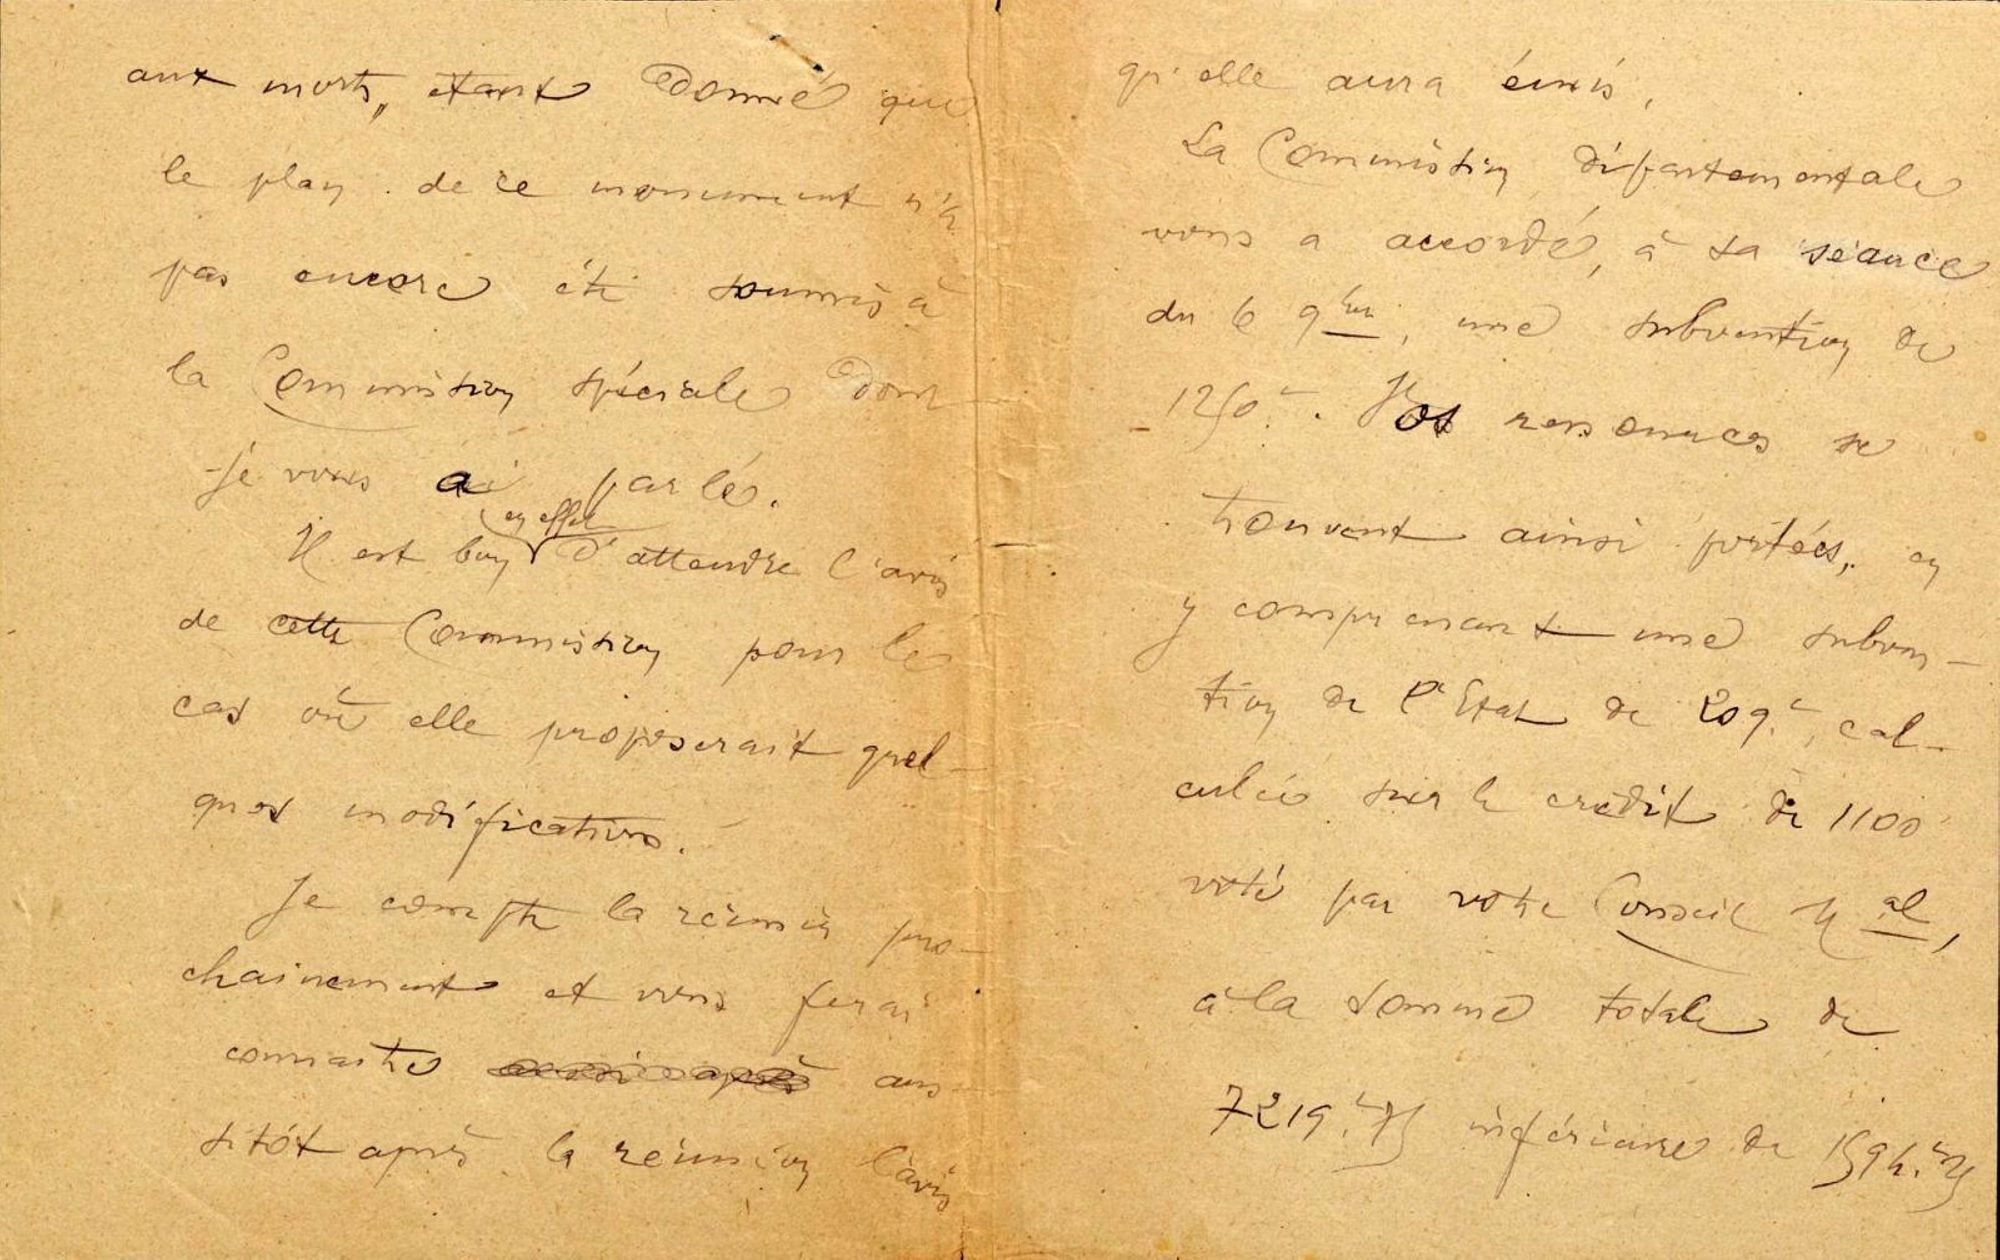 aux morts, étant donné que
le plan de ce monument n'a
pas encore été soumis à
la Commission spéciale dont
je vous ai parlé.
en effet
Il est bon d'attendre l'avis
de cette Commission pour le
cas où elle proposerait quel-
ques modifications.
Je compte la réunir pro-
chainement et vous ferai
connaître aussi après aus-
sitôt après la réunion l'avis
qu'elle aura émis.
La Commission départementale
vous a accordé, à sa séance
du 6 9bre, une subvention de
1250f. Vos ressources se
trouvent ainsi portées, en
y comprenant une subven-
tion de l'Etat de 209f, cal-
culée sur le crédit de 1100
voté par votre Conseil Mal,
à la somme totale de
7219.f75 inférieure de